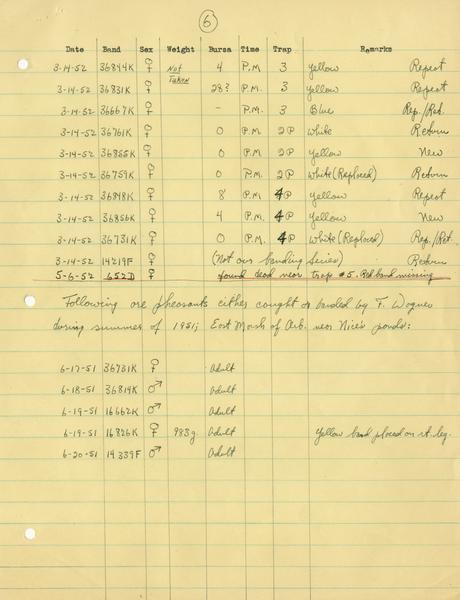 6
Date Band Sex Weight Bursa Time Trap Remarks
3-14-52 36844K ♀ Not Taken 4 P.M 3 Yellow Repeat
3-14-52 36831K ♀ 28? P.M. 3 Yellow Repeat
3-14-52 36667K ♀ - P.M. 3 Blue Rep./Ret.
3-14-52 36761K ♀ 0 P.M 2P White Return
3-14-52 36855K ♀ 0 P.M 2P Yellow New
3-14-52 36759K ♀ 0 P.M 2P White (Replaced) Return
3-14-52 36848K ♀ 8 P.M. 4P Yellow Repeat
3-14-52 36856K ♀ 4 P.M. 4P Yellow New
3-14-52 36731K ♀ 0 P.M. 4P White (Replaced) Rep./Ret.
3-14-52 14219F ♀ (Not our banding series) Return
5-6-52 652D ♀ found dead near trap #5. Red band missing
Following are pheasants either caught or banded by F. Wagner
during summer of 1951; East Marsh of Arb. near Nice's ponds:
6-17-51 36731K ♀ Adult
6-18-51 36814K ♂ Adult
6-19-51 16662K ♂ Adult
6-19-51 16826K ♀ 983g. Adult Yellow band placed on rt. leg.
6-20-51 14339F ♂ Adult